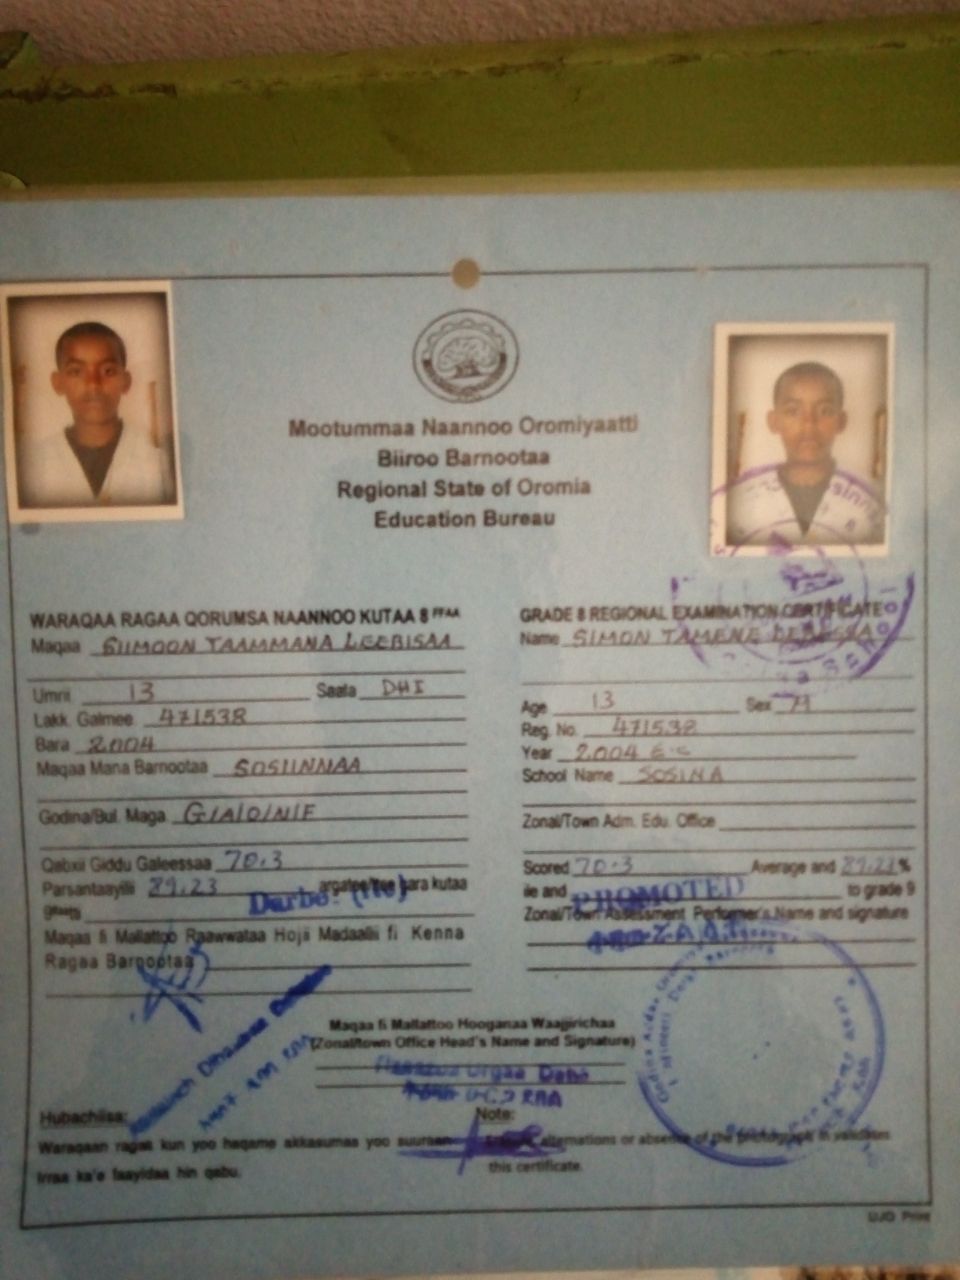 Mootummaa Naannoo Oromiyaatti
Biiroo Barnootaa
Regional State of Oromia
Education Bureau
WARAQAA RAGAA QORUMSA NAANNOO KUTAA 8 FFAA
Maqaa SIIMOON TAAMMANA LEEBISAA
Umrii 13 Saala DHI
Lakk. Galmee 471538
Bara 2004
Maqaa Mana Barnootaa SOSIINNAA
Godina/Bul. Maga G/A/O/N/F
Qabxii Giddu Galeessaa 70.3
Parsantaayilii 89.23 argatee/ttee bara kutaa
9ffaatti Darbe
Maqaa fi Mallattoo Raawwataa Hojii Madaallii fi Kenna
Ragaa Barnootaa
GRADE 8 REGIONAL EXAMINATION CERTIFICATE
Name SIMON TAMENE
Age 13 Sex M
Reg. No. 471538
Year 2004 E.C
School Name SOSINA
Zonal/Town Adm. Edu. Office
Scored 70.3 Average and 89.23%
ile and PROMOTED to grade 9
Zonal/Town Assessment Performer's Name and signature
Maqaa fi Mallattoo Hooganaa Waajjirichaa
(Zonal/town Office Head's Name and Signature)
Hubachiisa:
Waraqaan ragaa kun yoo haqame akkasumas yoo suuraan
irraa ka'e faayidaa hin qabu.
Note:
alternations or absence of the photograph
this certificate.
UJO Print